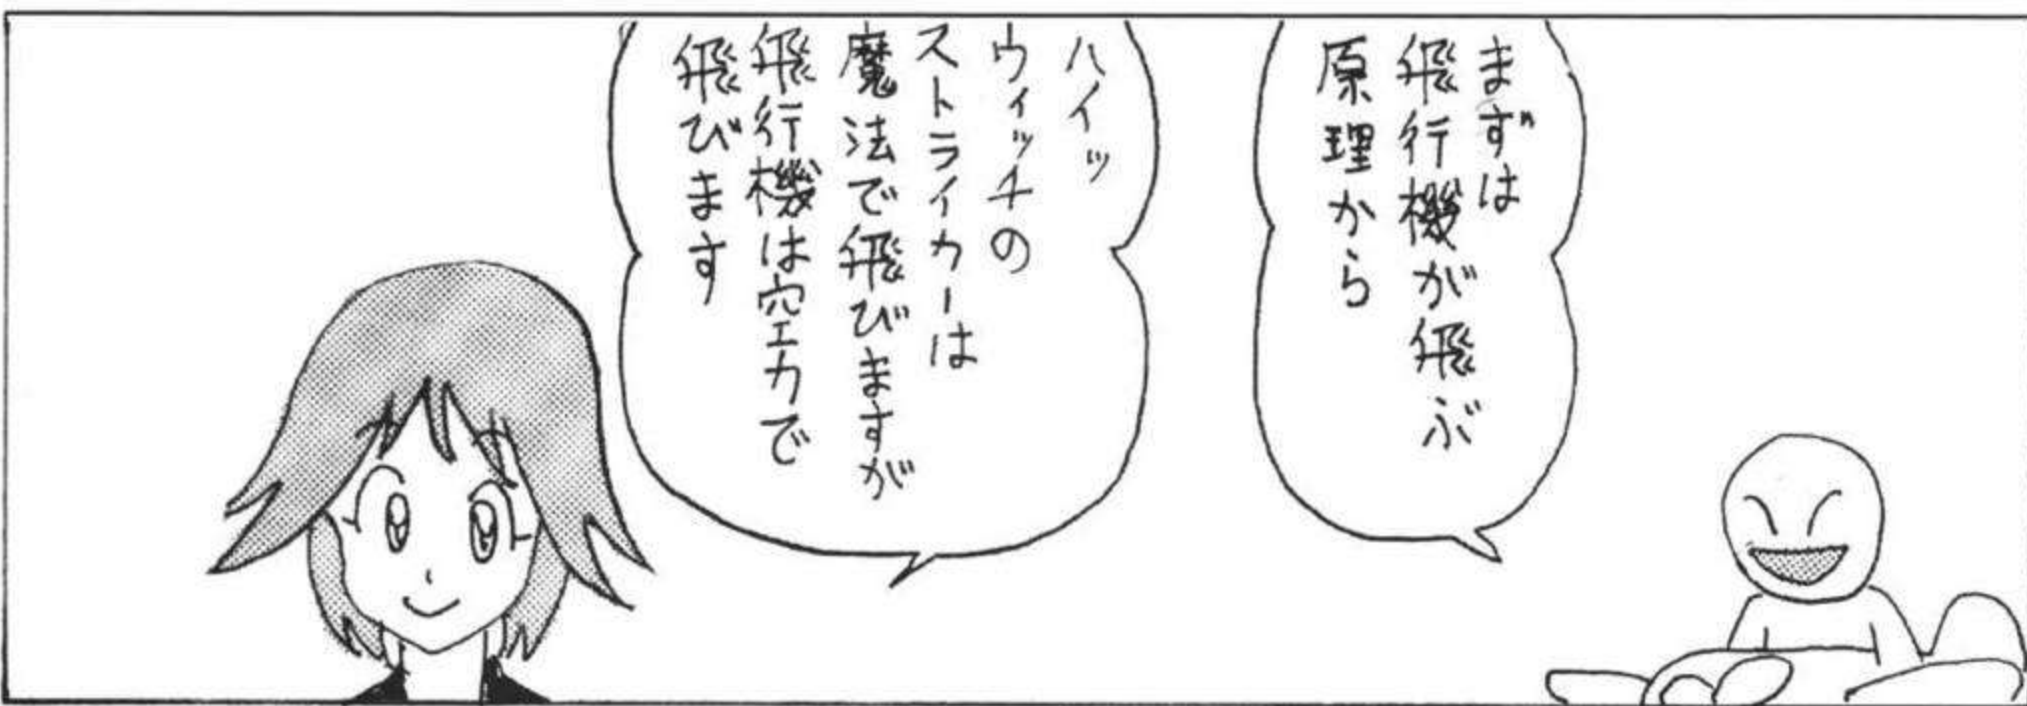 まずは
飛行機が飛ぶ
原理から
ハイッ
ウィッチの
ストライカーは
魔法で飛びますが
飛行機は空力で
飛びます